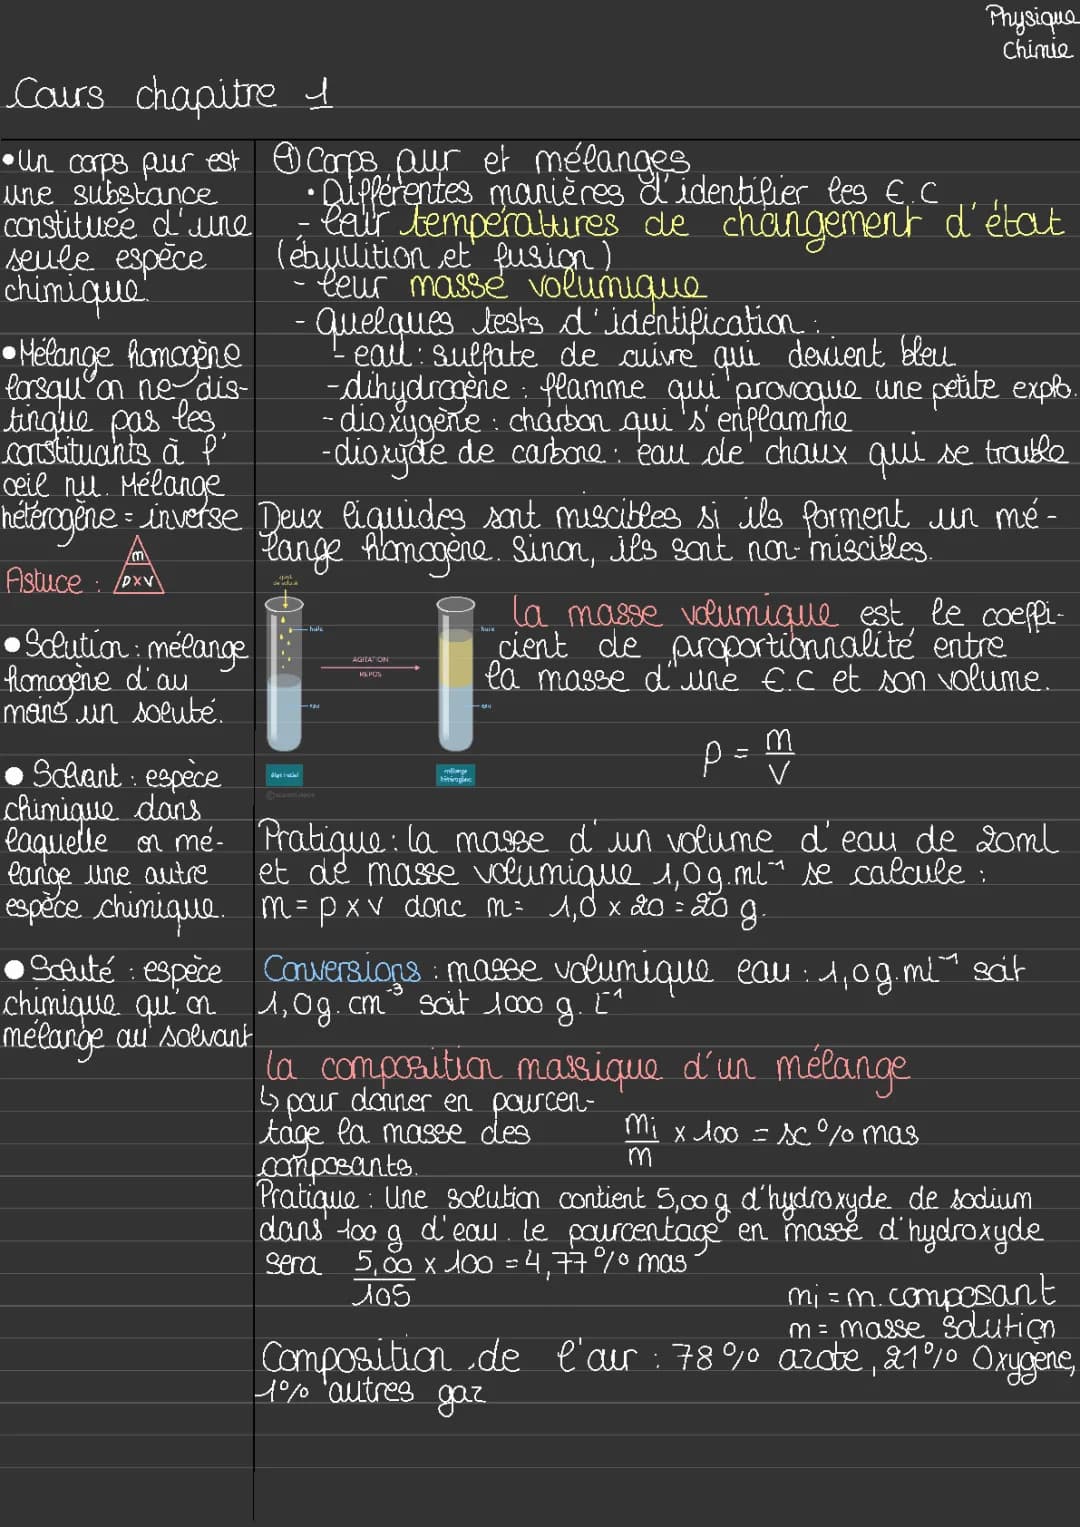 Physique
Chimie
Cours chapitre 1
• Un corps pur est
une substance
constituée d'une
seule espèce
chimique.
• Mélange homogène
lorsqu'on ne dis-
tingue pas les
constituants à l'
œil nu. Mélange
hétérogène = inverse
Astuce : m
ρxV
• Solution : mélange
homogène d'au
moins un soluté.
• Solvant : espèce
chimique dans
laquelle on mé-
lange une autre
espèce chimique.
• Soluté : espèce
chimique qu'on
mélange au solvant
① Corps pur et mélanges
• Différentes manières d'identifier les E.C
- leur températures de changement d'état
(ébullition et fusion)
- leur masse volumique
- Quelques tests d'identification :
- eau : sulfate de cuivre qui devient bleu
- dihydrogène : flamme qui provoque une petite explo.
- dioxygène : charbon qui s'enflamme
- dioxyde de carbone : eau de chaux qui se trouble
Deux liquides sont miscibles si ils forment un mé-
lange homogène. Sinon, ils sont non-miscibles.
ajout
huile
eau
état initial
AGITATION
REPOS
huile
eau
mélange
hétérogène
La masse volumique est le coeffi-
cient de proportionnalité entre
la masse d'une E.C et son volume.
ρ = m/V
Pratique : la masse d'un volume d'eau de 20ml
et de masse volumique 1,0g.ml⁻¹ se calcule :
m = ρ x v donc m = 1,0 x 20 = 20 g.
Conversions : masse volumique eau : 1,0g.ml⁻¹ soit
1,0g.cm⁻³ soit 1000 g.L⁻¹
La composition massique d'un mélange
↳ pour donner en pourcen-
tage la masse des
composants.
mi/m x 100 = x % mas
Pratique : Une solution contient 5,00 g d'hydroxyde de sodium
dans 100 g d'eau. Le pourcentage en masse d'hydroxyde
sera 5,00/105 x 100 = 4,77 % mas
mi = m. composant
m = masse solution
Composition de l'air : 78 % azote, 21% Oxygène,
1% autres gaz